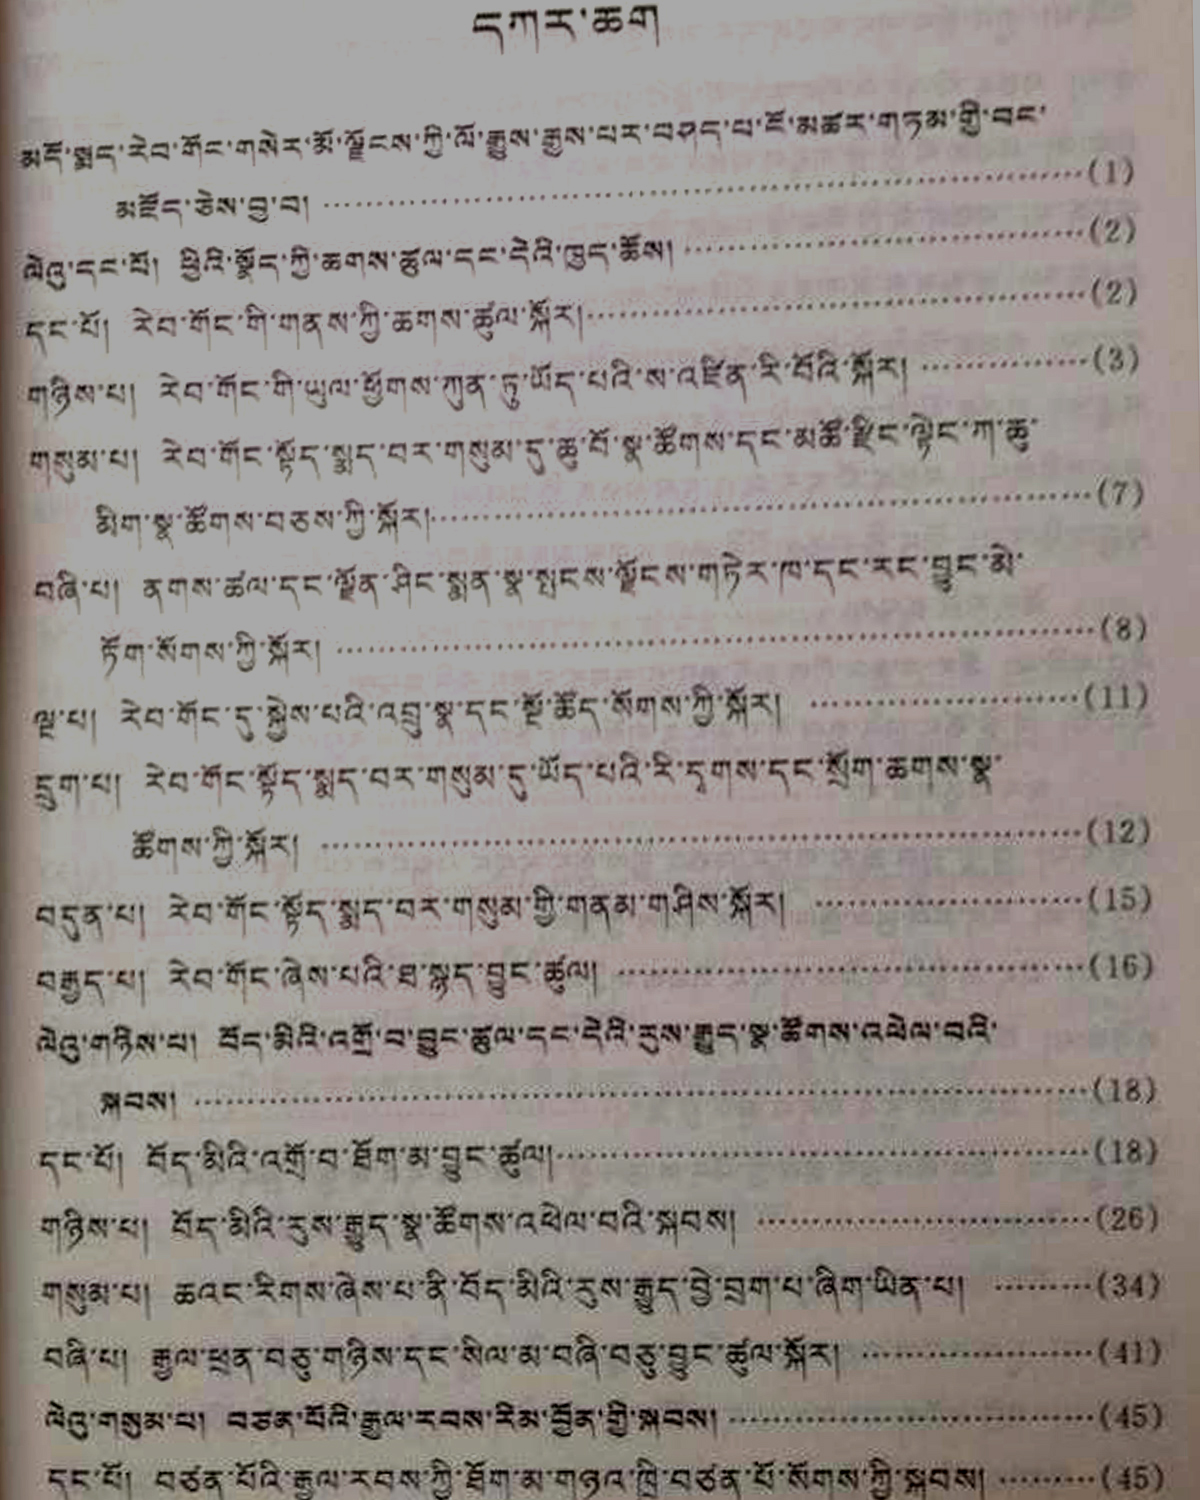 དཀར་ཆག
མདོ་སྨད་རེབ་གོང་གསེར་མོ་ལྗོངས་ཀྱི་ལོ་རྒྱུས་རྒྱས་པར་བཤད་པ་ངོ་མཚར་གཏམ་གྱི་བང་
མཛོད་ཅེས་བྱ་བ། ……………………………………(1)
ལེའུ་དང་པོ། ཕྱིའི་སྣོད་ཀྱི་ཆགས་ཚུལ་དང་དེའི་ཁྱད་ཆོས། ……………………(2)
དང་པོ། རེབ་གོང་གི་གནས་ཀྱི་ཆགས་ཚུལ་སྐོར།……………………(2)
གཉིས་པ། རེབ་གོང་གི་ཡུལ་ཕྱོགས་ཀུན་ཏུ་ཡོད་པའི་ས་འཛིན་རི་བོའི་སྐོར། …………(3)
གསུམ་པ། རེབ་གོང་སྟོད་སྨད་བར་གསུམ་དུ་ཆུ་བོ་སྣ་ཚོགས་དང་མཚོ་རྫིང་ལྟེང་ཀ་ཆུ་
མིག་སྣ་ཚོགས་བཅས་ཀྱི་སྐོར།………………………………(7)
བཞི་པ། ནགས་ཚལ་དང་ལྗོན་ཤིང་སྨན་སྣ་སྤངས་ལྗོངས་གཏེར་ཁ་དང་རང་བྱུང་མེ་
ཏོག་སོགས་ཀྱི་སྐོར། ……………………………………(8)
ལྔ་པ། རེབ་གོང་དུ་སྐྱེས་པའི་འབྲུ་སྣ་དང་སྔོ་ཚོད་སོགས་ཀྱི་སྐོར། ……………(11)
དྲུག་པ། རེབ་གོང་སྟོད་སྨད་བར་གསུམ་དུ་ཡོད་པའི་རི་དྭགས་དང་སྲོག་ཆགས་སྣ་
ཚོགས་ཀྱི་སྐོར། ……………………………………(12)
བདུན་པ། རེབ་གོང་སྟོད་སྨད་བར་གསུམ་གྱི་གནམ་གཤིས་སྐོར། ……………(15)
བརྒྱད་པ། རེབ་གོང་ཞེས་པའི་ཐ་སྙད་བྱུང་ཚུལ། ……………………(16)
ལེའུ་གཉིས་པ། བོད་མིའི་འགྲོ་བ་བྱུང་ཚུལ་དང་དེའི་རུས་རྒྱུད་སྣ་ཚོགས་འཕེལ་བའི་
སྐབས། ……………………………………………(18)
དང་པོ། བོད་མིའི་འགྲོ་བ་ཐོག་མ་བྱུང་ཚུལ།………………………(18)
གཉིས་པ། བོད་མིའི་རུས་རྒྱུད་སྣ་ཚོགས་འཕེལ་བའི་སྐབས། ………………(26)
གསུམ་པ། ཆའང་རིགས་ཞེས་པ་ནི་བོད་མིའི་རུས་རྒྱུད་བྱེ་བྲག་པ་ཞིག་ཡིན་པ། ………(34)
བཞི་པ། རྒྱལ་ཕྲན་བཅུ་གཉིས་དང་སིལ་མ་བཞི་བཅུ་བྱུང་ཚུལ་སྐོར། …………(41)
ལེའུ་གསུམ་པ། བཙན་པོའི་རྒྱལ་རབས་རིམ་བྱོན་གྱི་སྐབས། …………………(45)
དང་པོ། བཙན་པོའི་རྒྱལ་རབས་ཀྱི་ཐོག་མ་གཉའ་ཁྲི་བཙན་པོ་སོགས་ཀྱི་སྐབས། ………(45)